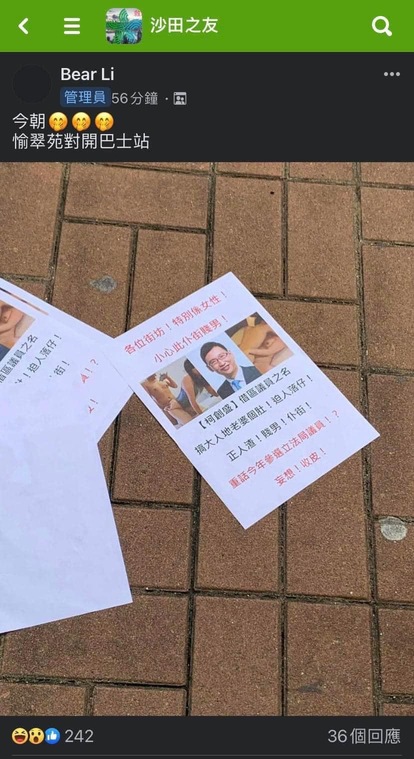 沙田之友
Bear Li
管理員 56分鐘
今朝🤭🤭🤭
愉翠苑對開巴士站
各位街坊！特別係女性！
小心此仆街賤男！
【柯創盛】借區議員之名
搞大人地老婆個肚！迫人落仔！
正人渣！賤男！仆街！
重話今年參選立法局議員！？
妄想！收皮！
借區議員之名
！迫人落仔！
！
！？
！
242
36個回應